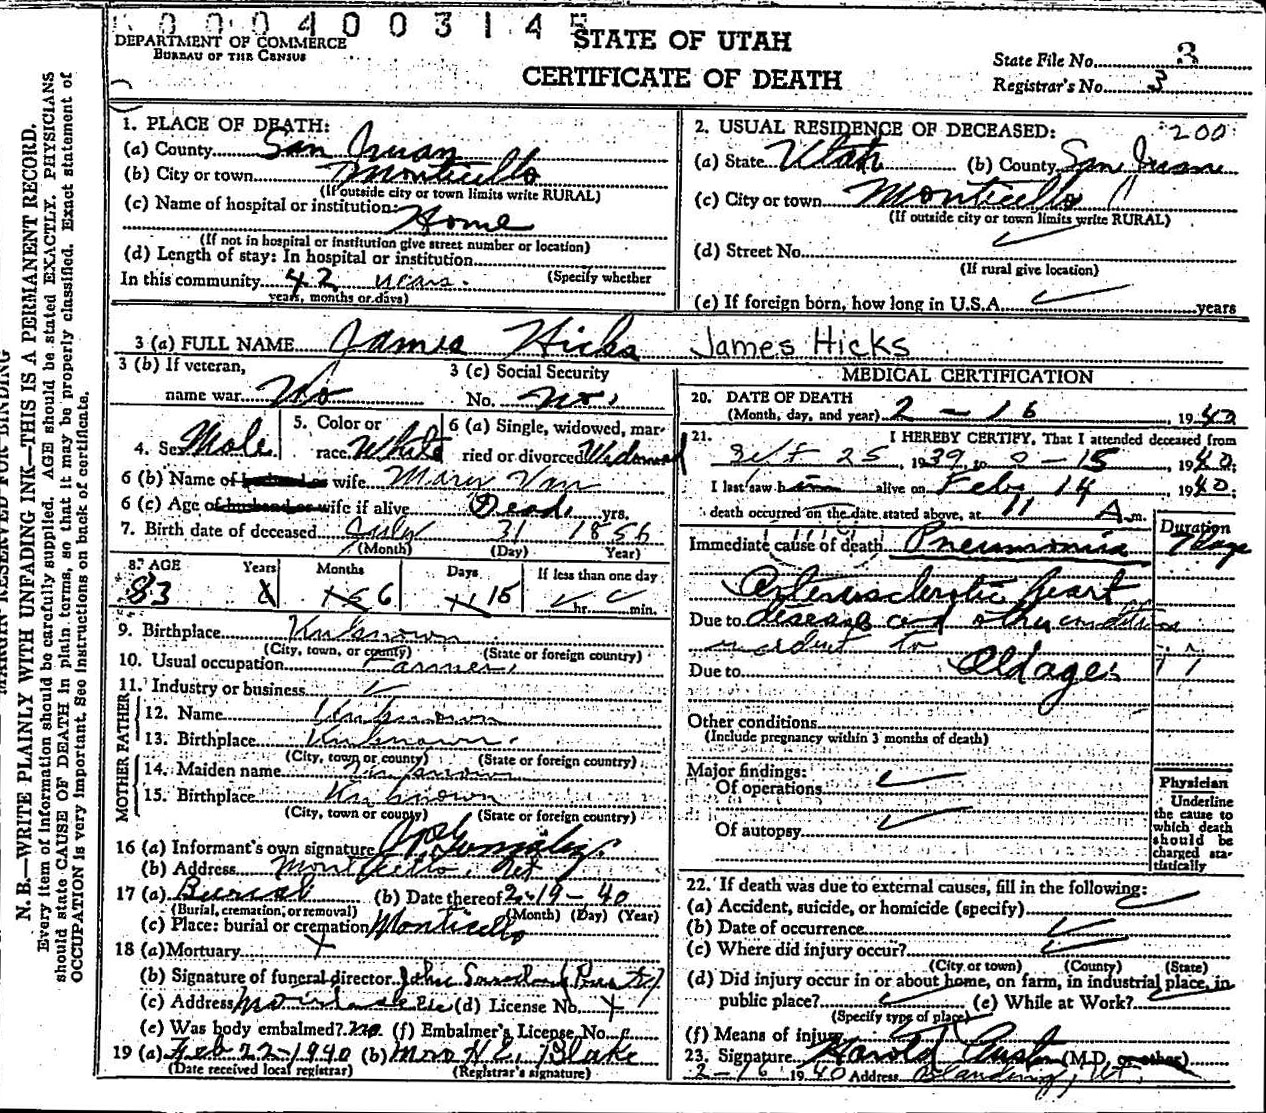 0 0 0 4 0 0 3 1 4 5
STATE OF UTAH
DEPARTMENT OF COMMERCE
BUREAU OF THE CENSUS
CERTIFICATE OF DEATH
State File No. 3
Registrar's No. 3
N. B.—WRITE PLAINLY WITH UNFADING INK—THIS IS A PERMANENT RECORD.
Every item of information should be carefully supplied. AGE should be stated EXACTLY. PHYSICIANS
should state CAUSE OF DEATH in plain terms, so that it may be properly classified. Exact statement of
OCCUPATION is very important. See instructions on back of certificate.
MARGIN RESERVED FOR BINDING
1. PLACE OF DEATH:
(a) County San Juan
(b) City or town Monticello
(If outside city or town limits write RURAL)
(c) Name of hospital or institution:
Home
(If not in hospital or institution give street number or location)
(d) Length of stay: In hospital or institution
(Specify whether
In this community 42 years.
years, months or days)
2. USUAL RESIDENCE OF DECEASED: 200
(a) State Utah (b) County San Juan
(c) City or town Monticello
(If outside city or town limits write RURAL)
(d) Street No.
(If rural give location)
(e) If foreign born, how long in U.S.A. years
3 (a) FULL NAME James Hicks James Hicks
3 (b) If veteran,
name war No
3 (c) Social Security
No. no.
4. Sex Male
5. Color or
race White
6 (a) Single, widowed, mar-
ried or divorced Widowed
6 (b) Name of husband or wife Mary Van
6 (c) Age of husband or wife if alive Dead. yrs.
7. Birth date of deceased July 31 1856
(Month) (Day) Year)
8. AGE Years Months Days If less than one day
83 6 15 hr. min.
9. Birthplace Unknown
(City, town, or county) (State or foreign country)
10. Usual occupation Farmer.
11. Industry or business
FATHER
12. Name Unknown
13. Birthplace Unknown.
(City, town or county) (State or foreign country)
MOTHER
14. Maiden name Unknown
15. Birthplace Unknown
(City, town or county) (State or foreign country)
16 (a) Informant's own signature Gonzalez
(b) Address Monticello, Ut
17 (a) Burial (b) Date thereof 2-19-40
(Burial, cremation, or removal) (Month) (Day) (Year)
(c) Place: burial or cremation Monticello
18 (a) Mortuary
(b) Signature of funeral director John
(c) Address (d) License No.
(e) Was body embalmed? no. (f) Embalmer's License No.
19 (a) Feb 22-1940 (b) Mrs H.E. Blake
(Date received local registrar) (Registrar's signature)
MEDICAL CERTIFICATION
20. DATE OF DEATH
(Month, day, and year) 2-16, 1940
21. I HEREBY CERTIFY, That I attended deceased from
Sept 25, 1939, to 2-15, 1940;
I last saw h alive on Feby 14, 1940;
death occurred on the date stated above, at 11 A.m.
Duration
Immediate cause of death Pneumonia 7 days
Arteriosclerotic heart
Due to disease and other conditions
incident to
Due to Old age.
Other conditions
(Include pregnancy within 3 months of death)
Major findings:
Of operations
Of autopsy
Physician
Underline
the cause to
which death
should be
charged sta-
tistically
22. If death was due to external causes, fill in the following:
(a) Accident, suicide, or homicide (specify)
(b) Date of occurrence
(c) Where did injury occur?
(City or town) (County) (State)
(d) Did injury occur in or about home, on farm, in industrial place, in
public place? (e) While at Work?
(Specify type of place)
(f) Means of injury
23. Signature Harold (M.D. or other)
2-16 1940 Address Blanding, Ut.